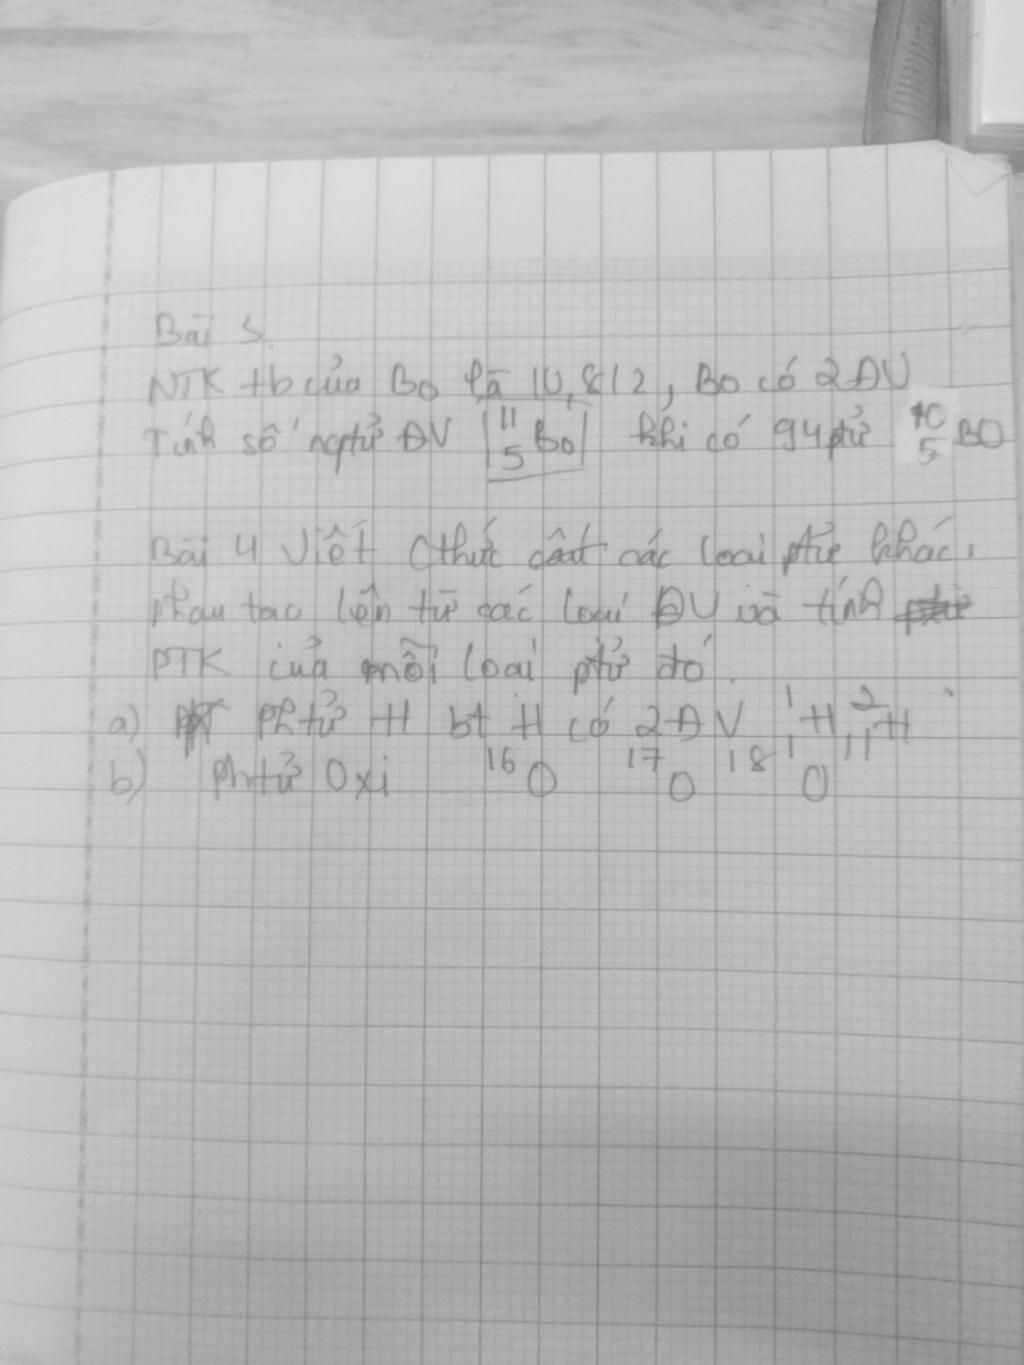 Bài 3.
NTK tb của Bo là 10,812, Bo có 2 ĐV
Tính số ngtử ĐV 11 5 Bo khi có 94 ptử 10 5 BO
Bài 4 Viết Cthức các loại ptử khác
phau tạo lên từ các loại ĐV và tính
PTK của mỗi loại ptử đó.
a) Phtử H bt H có 2 ĐV 1 1 H, 2 1 H
b) phtử Oxi 16 O 17 O 18 O